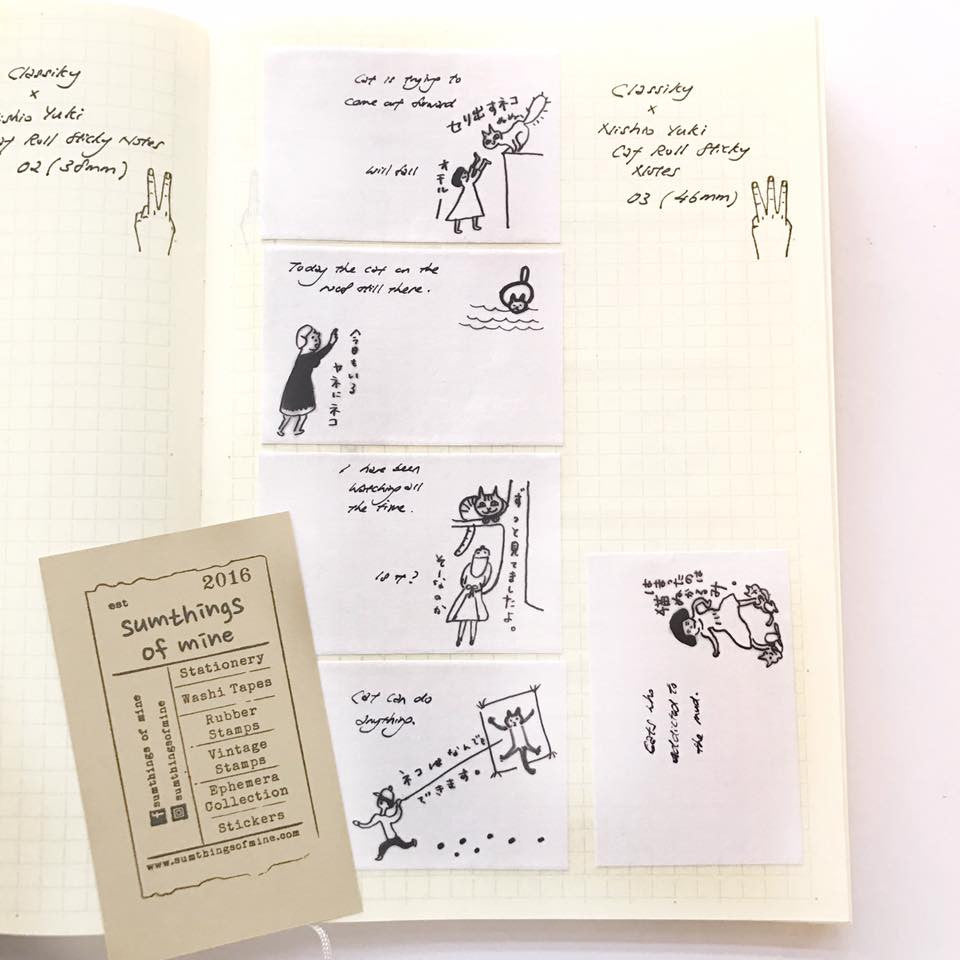 Classiky
x
ishio Yuki
Roll Sticky Notes
02 (38mm)
Cat is trying to
come out forward
セリ出すネコ
will fall
オチルー
Today the cat on the
roof still there.
今日もいる
ヤネにネコ
I have been
watching all
the time.
ずっと見てましたよ。
is it?
そーなのか
Cat can do
anything.
ネコはなんでも
できます。
Classiky
x
Nishio Yuki
Cat Roll Sticky
Notes
03 (46mm)
猫
はまったのは
ぬかるみ。
Cats who
addicted to
the mud.
est 2016
sumthings
of mine
Stationery
Washi Tapes
Rubber
Stamps
Vintage
Stamps
Ephemera
Collection
Stickers
f sumthings of mine
sumthingsofmine
www.sumthingsofmine.com